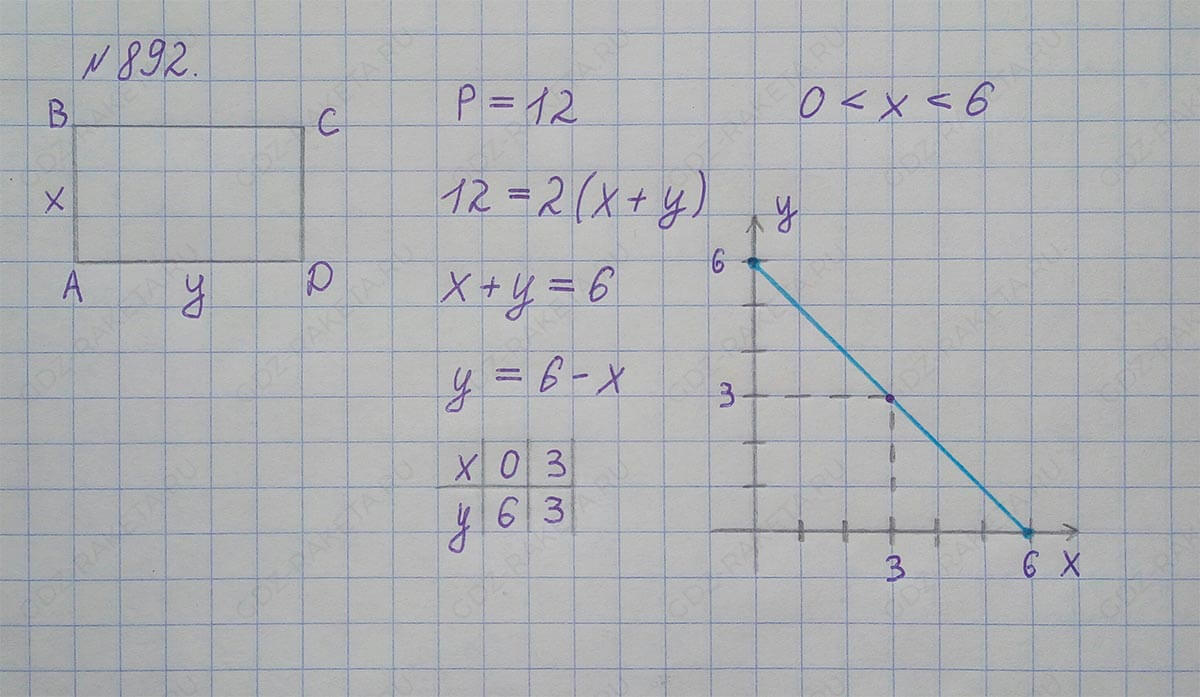 №892.
B
C
x
A
y
D
P = 12
12 = 2(x + y)
x + y = 6
y = 6 - x
x 0 3
y 6 3
0 < x < 6
y
6
3
3
6
x
GDZ-RAKETA.RU